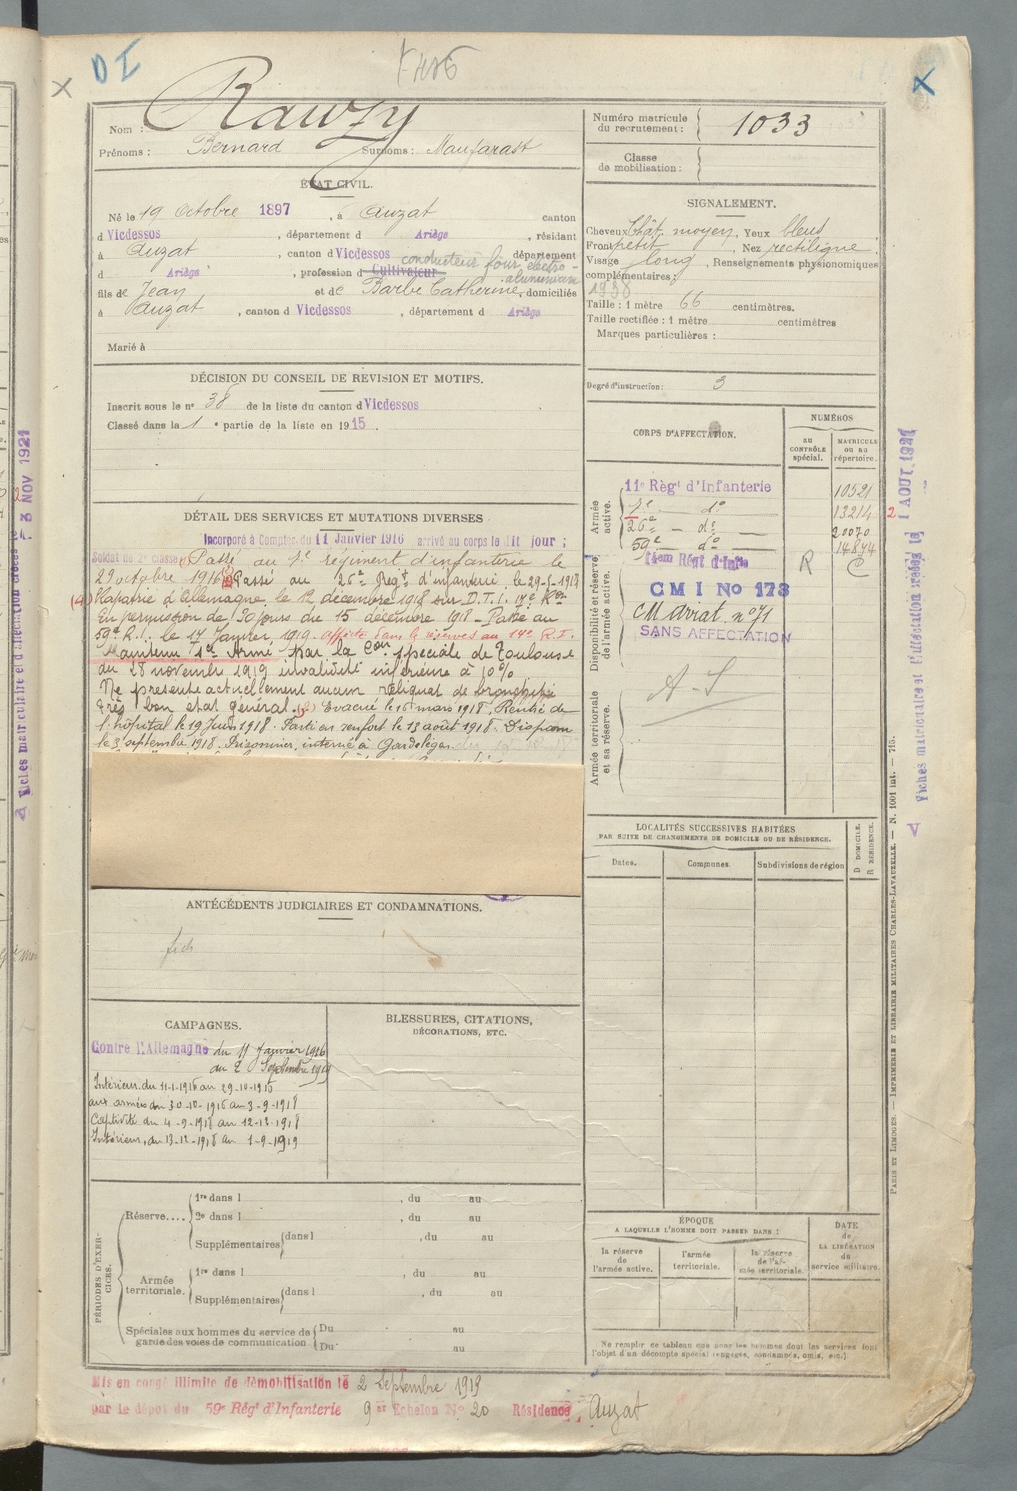 DI
1486
Nom : Rauzy
Prénoms : Bernard Surnoms : Maufarast
Numéro matricule du recrutement : 1033
Classe de mobilisation :
ÉTAT CIVIL.
Né le 19 Octobre 1897, à Auzat canton
d Vicdessos, département d Ariège, résidant
à Auzat, canton d Vicdessos département
d Ariège, profession d Cultivateur conducteur four électro-aluminium
fils de Jean et de Barbe Catherine, domiciliés
à Auzat, canton d Vicdessos, département d Ariège
Marié à
SIGNALEMENT.
Cheveux Chât. moyen, Yeux bleus
Front petit, Nez rectiligne
Visage long, Renseignements physionomiques
complémentaires :
1938
Taille : 1 mètre 66 centimètres.
Taille rectifiée : 1 mètre centimètres
Marques particulières :
Degré d'instruction : 3
DÉCISION DU CONSEIL DE RÉVISION ET MOTIFS.
Inscrit sous le n° 38 de la liste du canton d Vicdessos
Classé dans la 1e partie de la liste en 1915.
CORPS D'AFFECTATION.
NUMÉROS
AU CONTRÔLE spécial.
MATRICULE ou au répertoire.
Armée active.
11e Régt d'Infanterie 10521
7e — do 13214 2
26e — do 20070
59e do 14844
Disponibilité et réserve de l'armée active.
14eme Régt d'Infie R C
CMI No 173
CM Avrat. n°71
SANS AFFECTATION
Armée territoriale et sa réserve.
A-S
DÉTAIL DES SERVICES ET MUTATIONS DIVERSES
Incorporé à Compter du 11 Janvier 1916 arrivé au corps le dit jour ;
Soldat de 2e classe Passé au 7e régiment d'infanterie le
29 octobre 1916 Passé au 26e Régt d'infanterie le 29-5-1918
Rapatrié d'Allemagne le 12 décembre 1918 sur D.T.I. 17e Ron
En permission de 30 jours du 15 décembre 1918 - Passé au
59e R.I. le 17 Janvier 1919 - affecté dans la réserve au 14e R.I.
Maintenu Sce Armé - Par la Con spéciale de Toulouse
du 28 novembre 1919 invalidité inférieure à 10%
Ne présente actuellement aucun reliquat de bronchite
très bon état général. (2) Evacué le 16 mars 1918. Rentré de
l'hôpital le 19 Juin 1918. Parti en renfort le 13 août 1918. Disparu
le 3 septembre 1918. Prisonnier interné à Gardelegen
LOCALITÉS SUCCESSIVES HABITÉES
PAR SUITE DE CHANGEMENTS DE DOMICILE OU DE RÉSIDENCE.
Dates. Communes. Subdivisions de région
D DOMICILE. R RÉSIDENCE.
ANTÉCÉDENTS JUDICIAIRES ET CONDAMNATIONS.
CAMPAGNES.
Contre l'Allemagne du 11 Janvier 1916
au 2 Septembre 1919
Intérieur du 11-1-1916 au 29-10-1916
aux armées du 30-10-1916 au 3-9-1918
Captivité du 4-9-1918 au 12-12-1918
Intérieur, du 13-12-1918 au 1-9-1919
BLESSURES, CITATIONS,
DÉCORATIONS, ETC.
PÉRIODES D'EXERCICES.
Réserve....
1re dans l , du au
2e dans l , du au
Supplémentaires dans l , du au
Armée territoriale.
1re dans l , du au
Supplémentaires dans l , du au
Spéciales aux hommes du service de garde des voies de communication
Du au
Du au
ÉPOQUE
A LAQUELLE L'HOMME DOIT PASSER DANS :
la réserve de l'armée active.
l'armée territoriale.
la réserve de l'armée territoriale.
DATE de LA LIBÉRATION du service militaire.
Ne remplir ce tableau que pour les hommes dont les services font
l'objet d'un décompte spécial (engagés, condamnés, omis, etc.)
Mis en congé illimité de démobilisation le 2 Septembre 1919
par le dépôt du 59e Régt d'Infanterie 9e Echelon No 20 Résidence Auzat
PARIS ET LIMOGES. — IMPRIMERIE ET LIBRAIRIE MILITAIRES CHARLES-LAVAUZELLE. — N. 1001 int. — 715.
Fiches matriculaire et d'affectation créées le 1 AOUT 1921
Fiches matriculaire et d'affectation créées le 3 NOV 1921